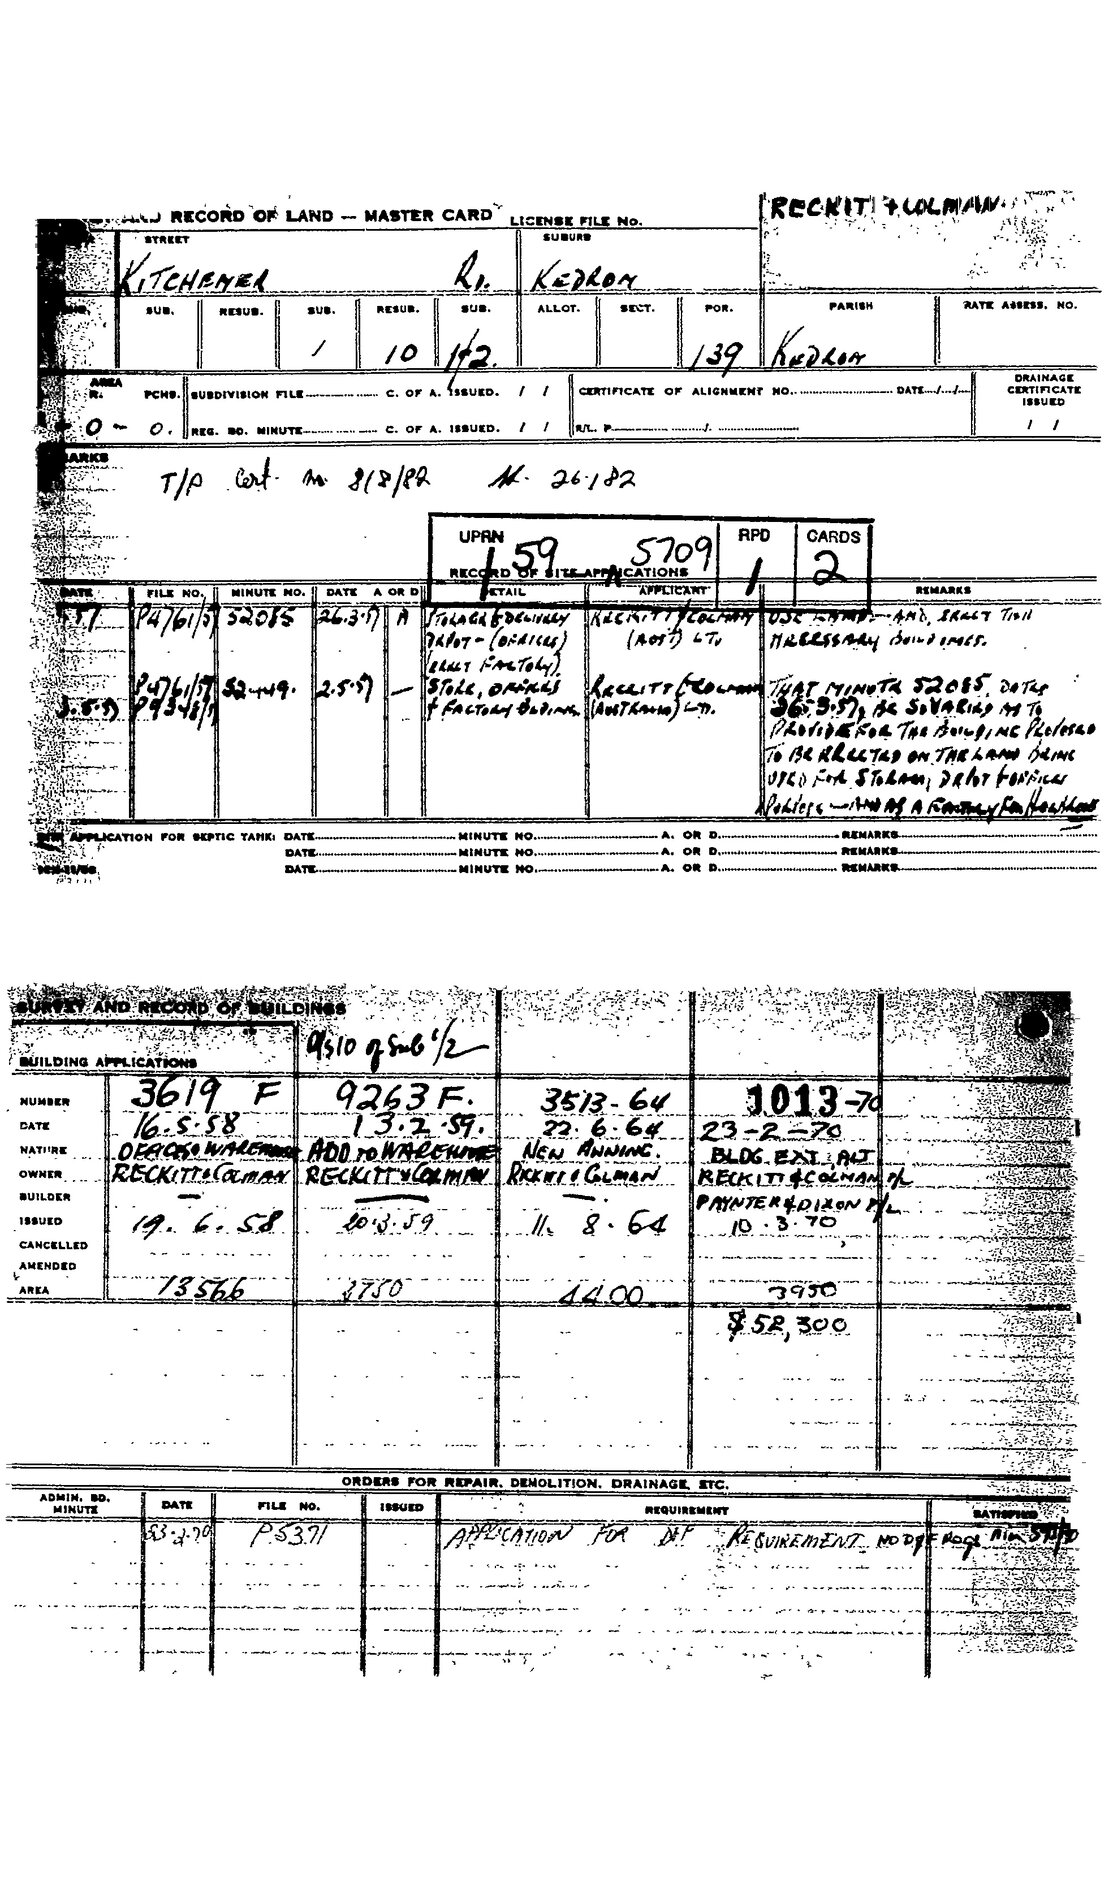 AND RECORD OF LAND — MASTER CARD LICENSE FILE No. RECKITT & COLMAN
STREET SUBURB
KITCHENER RD. KEDRON
SUB. RESUB. SUB. RESUB. SUB. ALLOT. SECT. POR. PARISH RATE ASSESS. NO.
1 10 1&2. 139 KEDRON
AREA
R. PCHS. SUBDIVISION FILE C. OF A. ISSUED. / / CERTIFICATE OF ALIGNMENT NO. DATE / / DRAINAGE CERTIFICATE ISSUED
- 0 - 0. REG. BD. MINUTE C. OF A. ISSUED. / / R/L. P / / /
ARKS
T/P Cert. 8/8/82 26.1.82
UPRN 159 5709 RPD 1 CARDS 2
RECORD OF SITE APPLICATIONS
DATE FILE NO. MINUTE NO. DATE A OR D DETAIL APPLICANT REMARKS
P4761/57 52085 26.3.57 A STORAGE & DELIVERY RECKITT & COLMAN USE LAND — AND ERECT THE
DEPOT — (OFFICES) (AUST) LT. NECESSARY BUILDINGS.
(ERECT FACTORY).
P4761/57 52449. 2.5.57 — STORE, OFFICES RECKITT & COLMAN THAT MINUTE 52085, DATED
3.5.57 & FACTORY BUILDING (AUSTRALIA) LTD. 26.3.57, BE SO VARIED AS TO
PROVIDE FOR THE BUILDING PROPOSED
TO BE ERECTED ON THE LAND BEING
USED FOR STORAGE, DEPOT & OFFICES
PURPOSES — AND AS A FACTORY FOR
APPLICATION FOR SEPTIC TANK: DATE MINUTE NO. A. OR D. REMARKS
DATE MINUTE NO. A. OR D. REMARKS
DATE MINUTE NO. A. OR D. REMARKS
SURVEY AND RECORD OF BUILDINGS
R/S 10 of Sub 1/2
BUILDING APPLICATIONS
NUMBER 3619 F 9263 F. 3513-64 1013-70
DATE 16.5.58 13.2.59. 22.6.64 23-2-70
NATURE OFFICES & WAREHOUSE ADD TO WAREHOUSE NEW AWNING. BLDG EXT ALT
OWNER RECKITT & COLMAN RECKITT & COLMAN RECKITT & COLMAN RECKITT & COLMAN P/L
BUILDER — — — PAYNTER & DIXON P/L
ISSUED 19.6.58 20.3.59 11.8.64 10.3.70
CANCELLED
AMENDED
AREA 13566 2750 4400 3950
$52,300
ORDERS FOR REPAIR, DEMOLITION, DRAINAGE, ETC.
ADMIN. BD. MINUTE DATE FILE NO. ISSUED REQUIREMENT SATISFIED
P5371 APPLICATION FOR REQUIREMENT